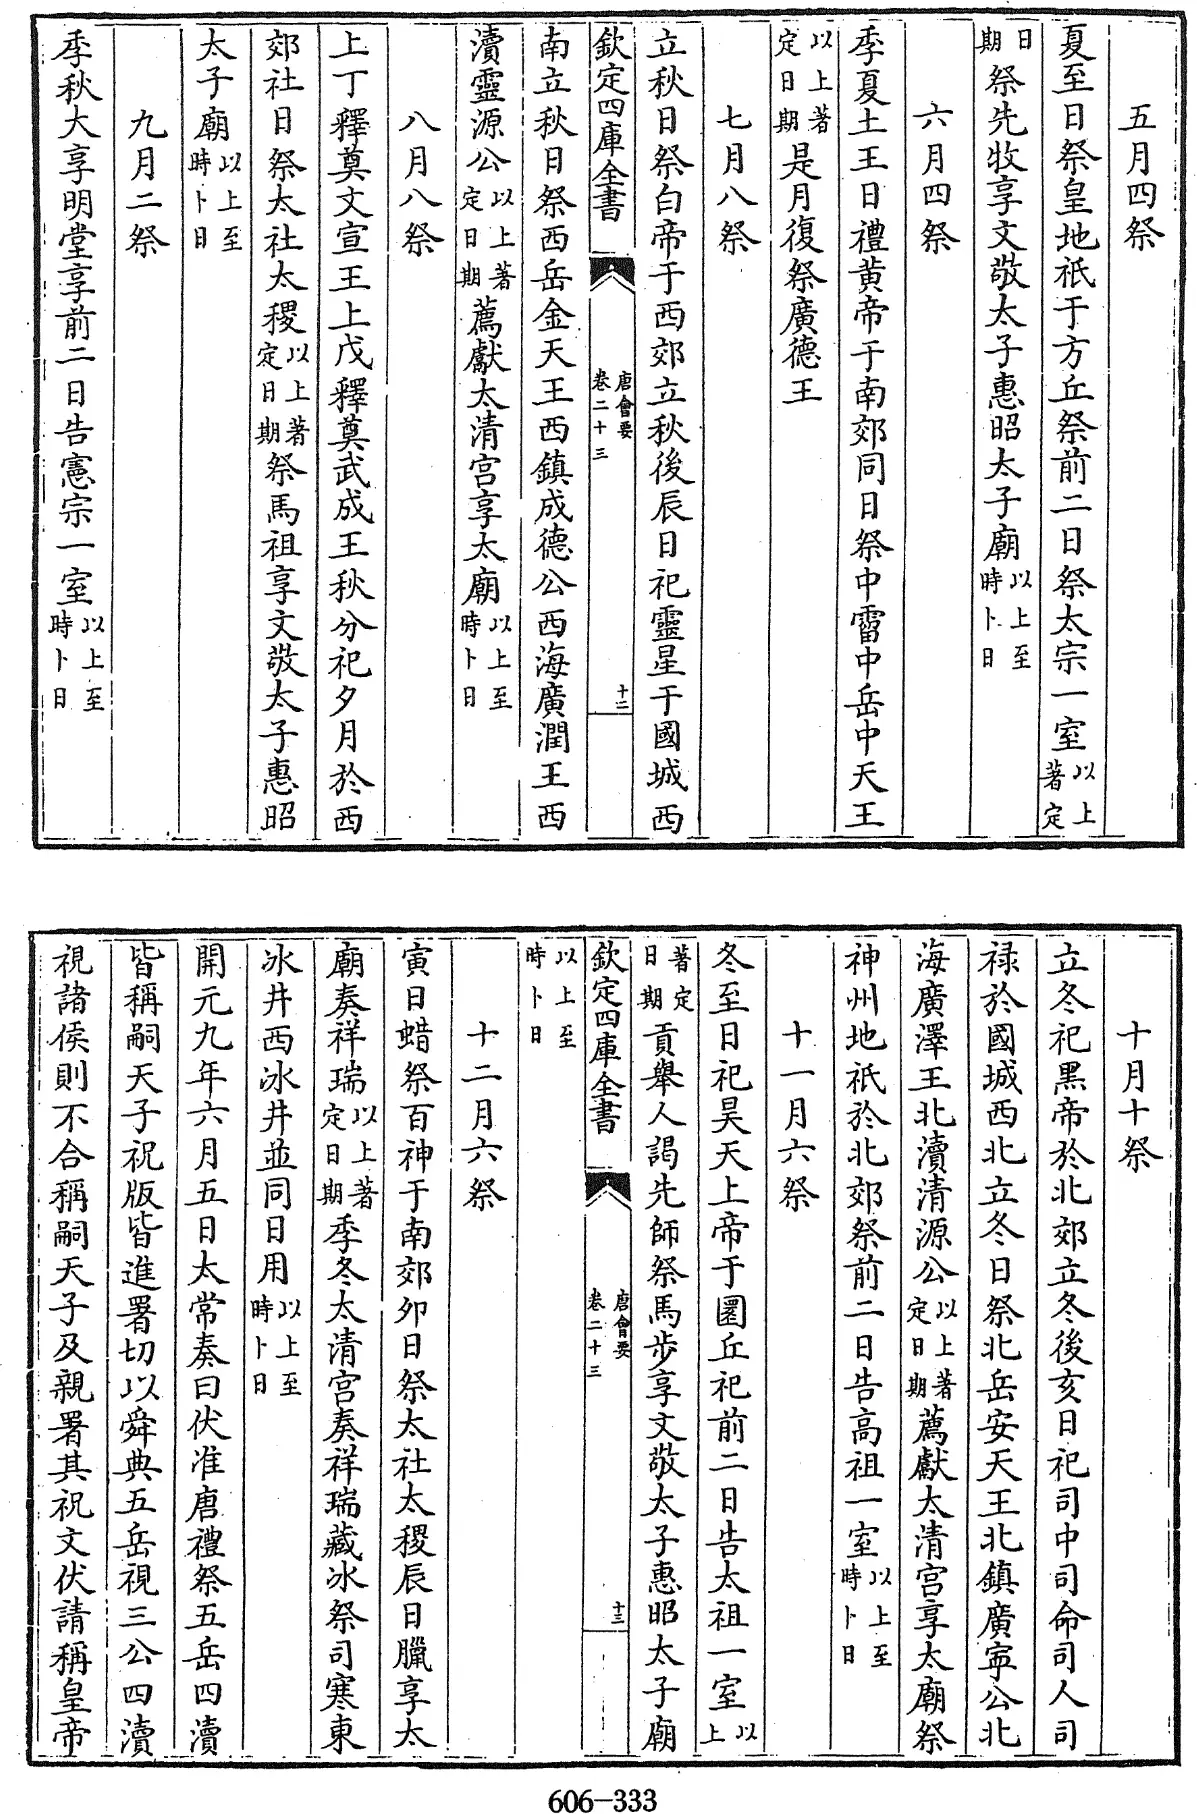 五月四祭
夏至日祭皇地祇于方丘祭前二日祭太宗一室以上著定
日期祭先牧享文敬太子惠昭太子廟以上至時卜日
六月四祭
季夏土王日禮黄帝于南郊同日祭中霤中岳中天王
以上著定日期是月復祭廣德王
七月八祭
立秋日祭白帝于西郊立秋後辰日祀靈星于國城西
欽定四庫全書
唐會要
卷二十三
十二
南立秋日祭西岳金天王西鎮成德公西海廣潤王西
瀆靈源公以上著定日期薦獻太清宫享太廟以上至時卜日
八月八祭
上丁釋奠文宣王上戊釋奠武成王秋分祀夕月於西
郊社日祭太社太稷以上著定日期祭馬祖享文敬太子惠昭
太子廟以上至時卜日
九月二祭
季秋大享明堂享前二日告憲宗一室以上至時卜日
十月十祭
立冬祀黑帝於北郊立冬後亥日祀司中司命司人司
禄於國城西北立冬日祭北岳安天王北鎮廣寧公北
海廣澤王北瀆清源公以上著定日期薦獻太清宫享太廟祭
神州地祇於北郊祭前二日告高祖一室以上至時卜日
十一月六祭
冬至日祀昊天上帝于圜丘祀前二日告太祖一室以上
著定日期貢舉人謁先師祭馬步享文敬太子惠昭太子廟
欽定四庫全書
唐會要
卷二十三
十三
以上至時卜日
十二月六祭
寅日蜡祭百神于南郊夘日祭太社太稷辰日臘享太
廟奏祥瑞以上著定日期季冬太清宫奏祥瑞藏冰祭司寒東
冰井西冰井並同日用以上至時卜日
開元九年六月五日太常奏曰伏准唐禮祭五岳四瀆
皆稱嗣天子祝版皆進署切以舜典五岳視三公四瀆
視諸侯則不合稱嗣天子及親署其祝文伏請稱皇帝
606-333